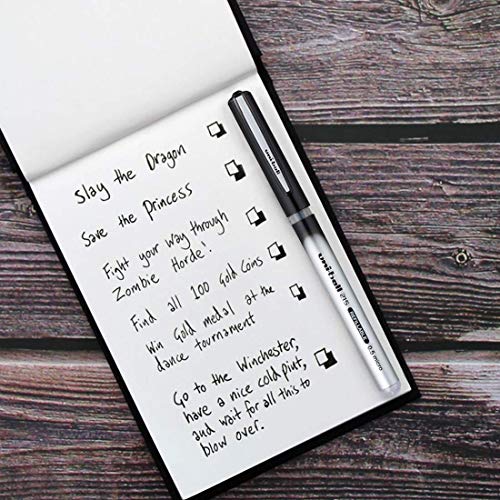 Slay the Dragon
Save the Princess
Fight your way through
Zombie Horde!
Find all 100 Gold Coins
Win Gold medal at the
dance tournament
Go to the Winchester,
have a nice cold pint,
and wait for all this to
blow over.
uniball
uniball 215 REFILLABLE 0.5 micro